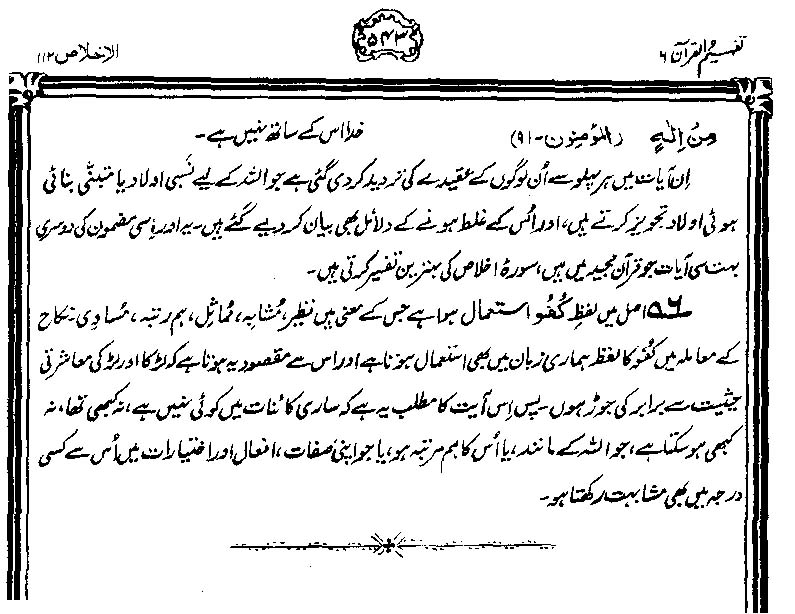 تفہیم القرآن ۶
۵۴۳
الاخلاص ۱۱۲
مِنْ اِلٰہٍ (المؤمنون-۹۱) خدا اس کے ساتھ نہیں ہے۔
اِن آیات میں ہر پہلو سے اُن لوگوں کے عقیدے کی تردید کر دی گئی ہے جو اللہ کے لیے نَسَبی اولاد یا متبنّٰی بنائی
ہوئی اولاد تجویز کرتے ہیں، اور اُس کے غلط ہونے کے دلائل بھی بیان کر دیے گئے ہیں۔ یہ اور اِسی مضمون کی دوسری
بہت سی آیات جو قرآن مجید میں ہیں، سورۂ اخلاص کی بہترین تفسیر کرتی ہیں۔
۶ اصل میں لفظ کُفُو استعمال ہوا ہے جس کے معنی ہیں نظیر، مُشابہ، مُماثِل، ہم رتبہ، مُساوی۔ نکاح
کے معاملہ میں کُفُو کا لفظ ہماری زبان میں بھی استعمال ہوتا ہے اور اس سے مقصود یہ ہوتا ہے کہ لڑکا اور لڑکی معاشرتی
حیثیت سے برابر کی جوڑ ہوں۔ پس اِس آیت کا مطلب یہ ہے کہ ساری کائنات میں کوئی نہیں ہے، نہ کبھی تھا، نہ
کبھی ہو سکتا ہے، جو اللہ کے مانند، یا اُس کا ہم مرتبہ ہو، یا جو اپنی صفات، افعال اور اختیارات میں اُس سے کسی
درجہ میں بھی مشابہت رکھتا ہو۔